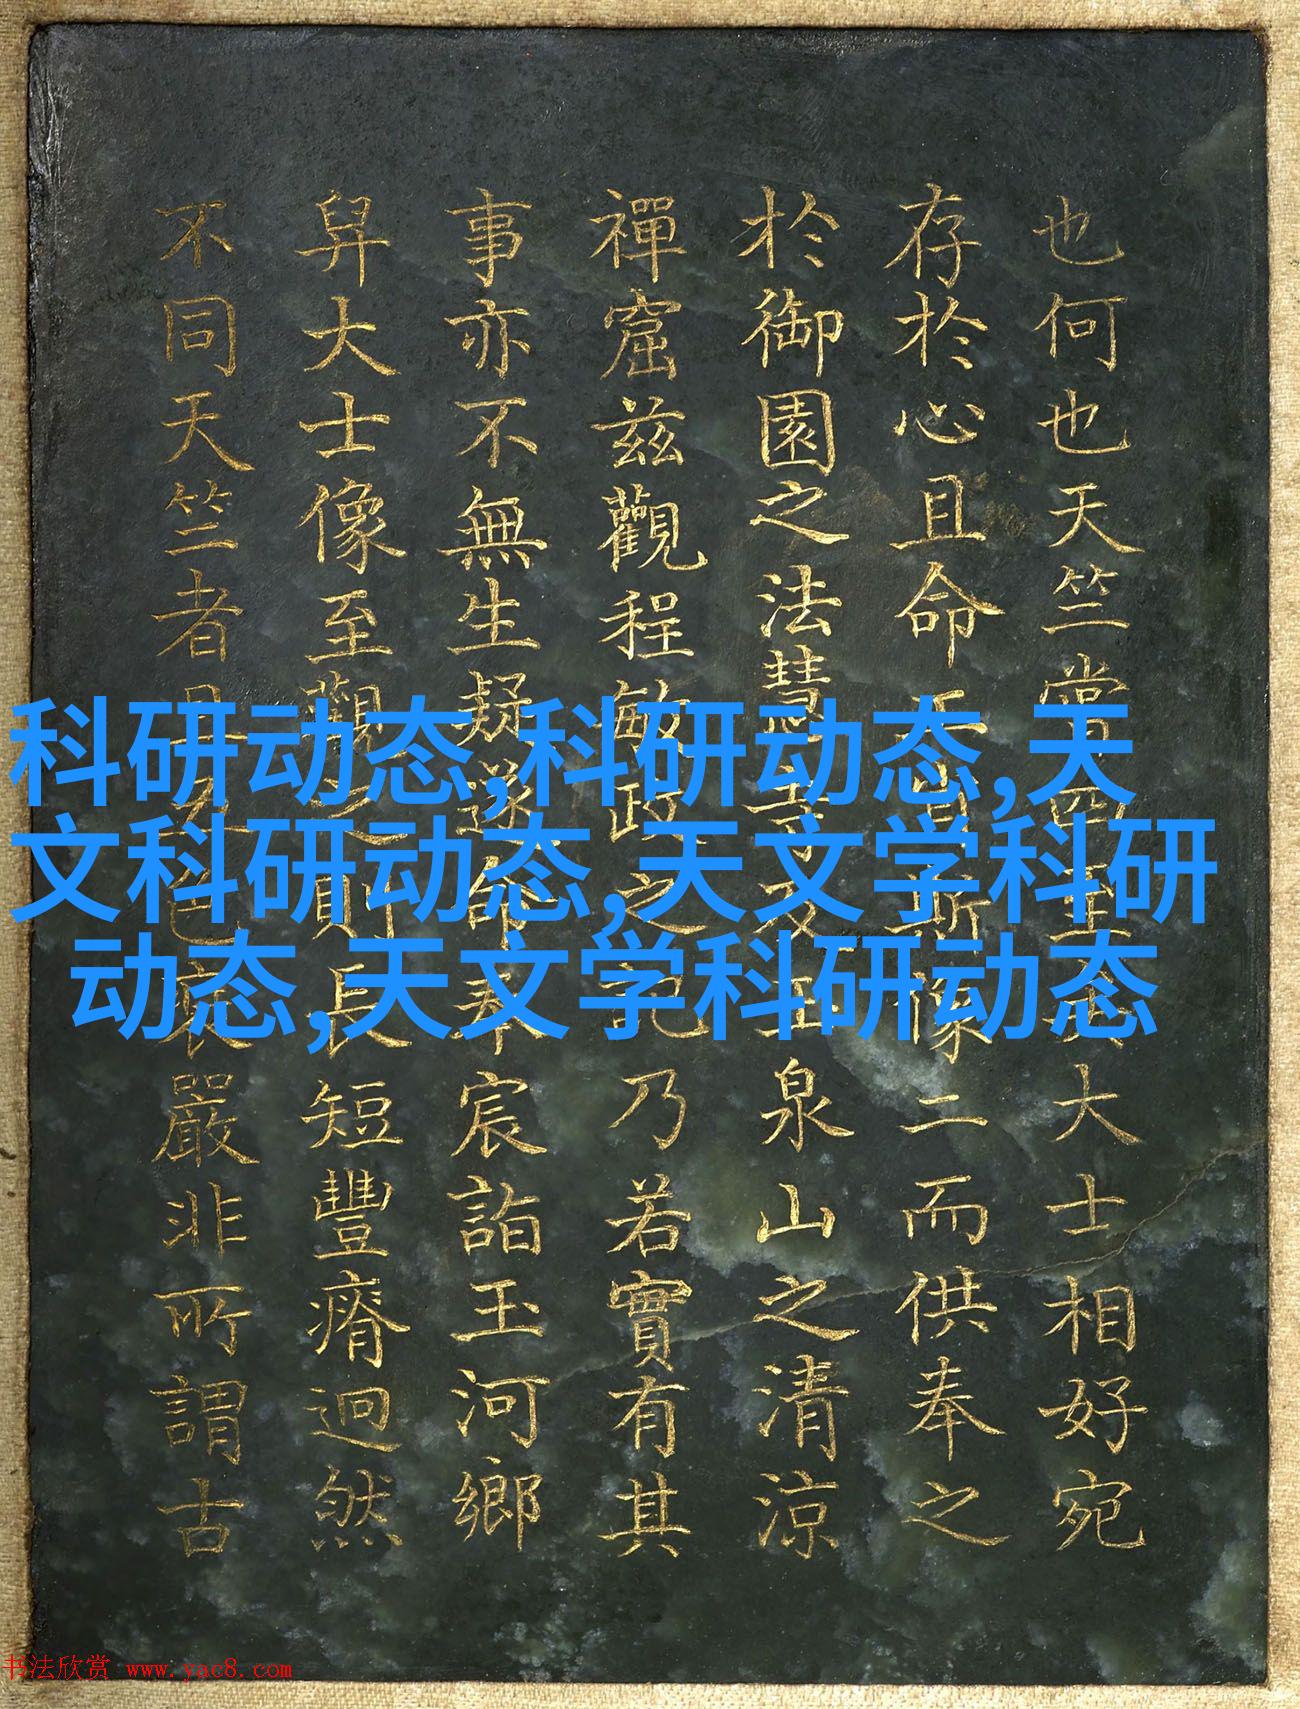 科研动态,科研动态,天
文科研动态,天文学科研
动态,天文学科研动态
也何也天竺大士相好宛
存於心且命工斯像二而供奉之
於御園之法慧寺及玉泉山之清涼
禪窟茲觀程敏政之記乃若實有其
事亦不無生疑遂命奉宸詣玉河鄉
舁大士像至觀之則長短豐瘠迥然
不同天竺者嚴非所謂古
书法欣赏 www.yac8.com